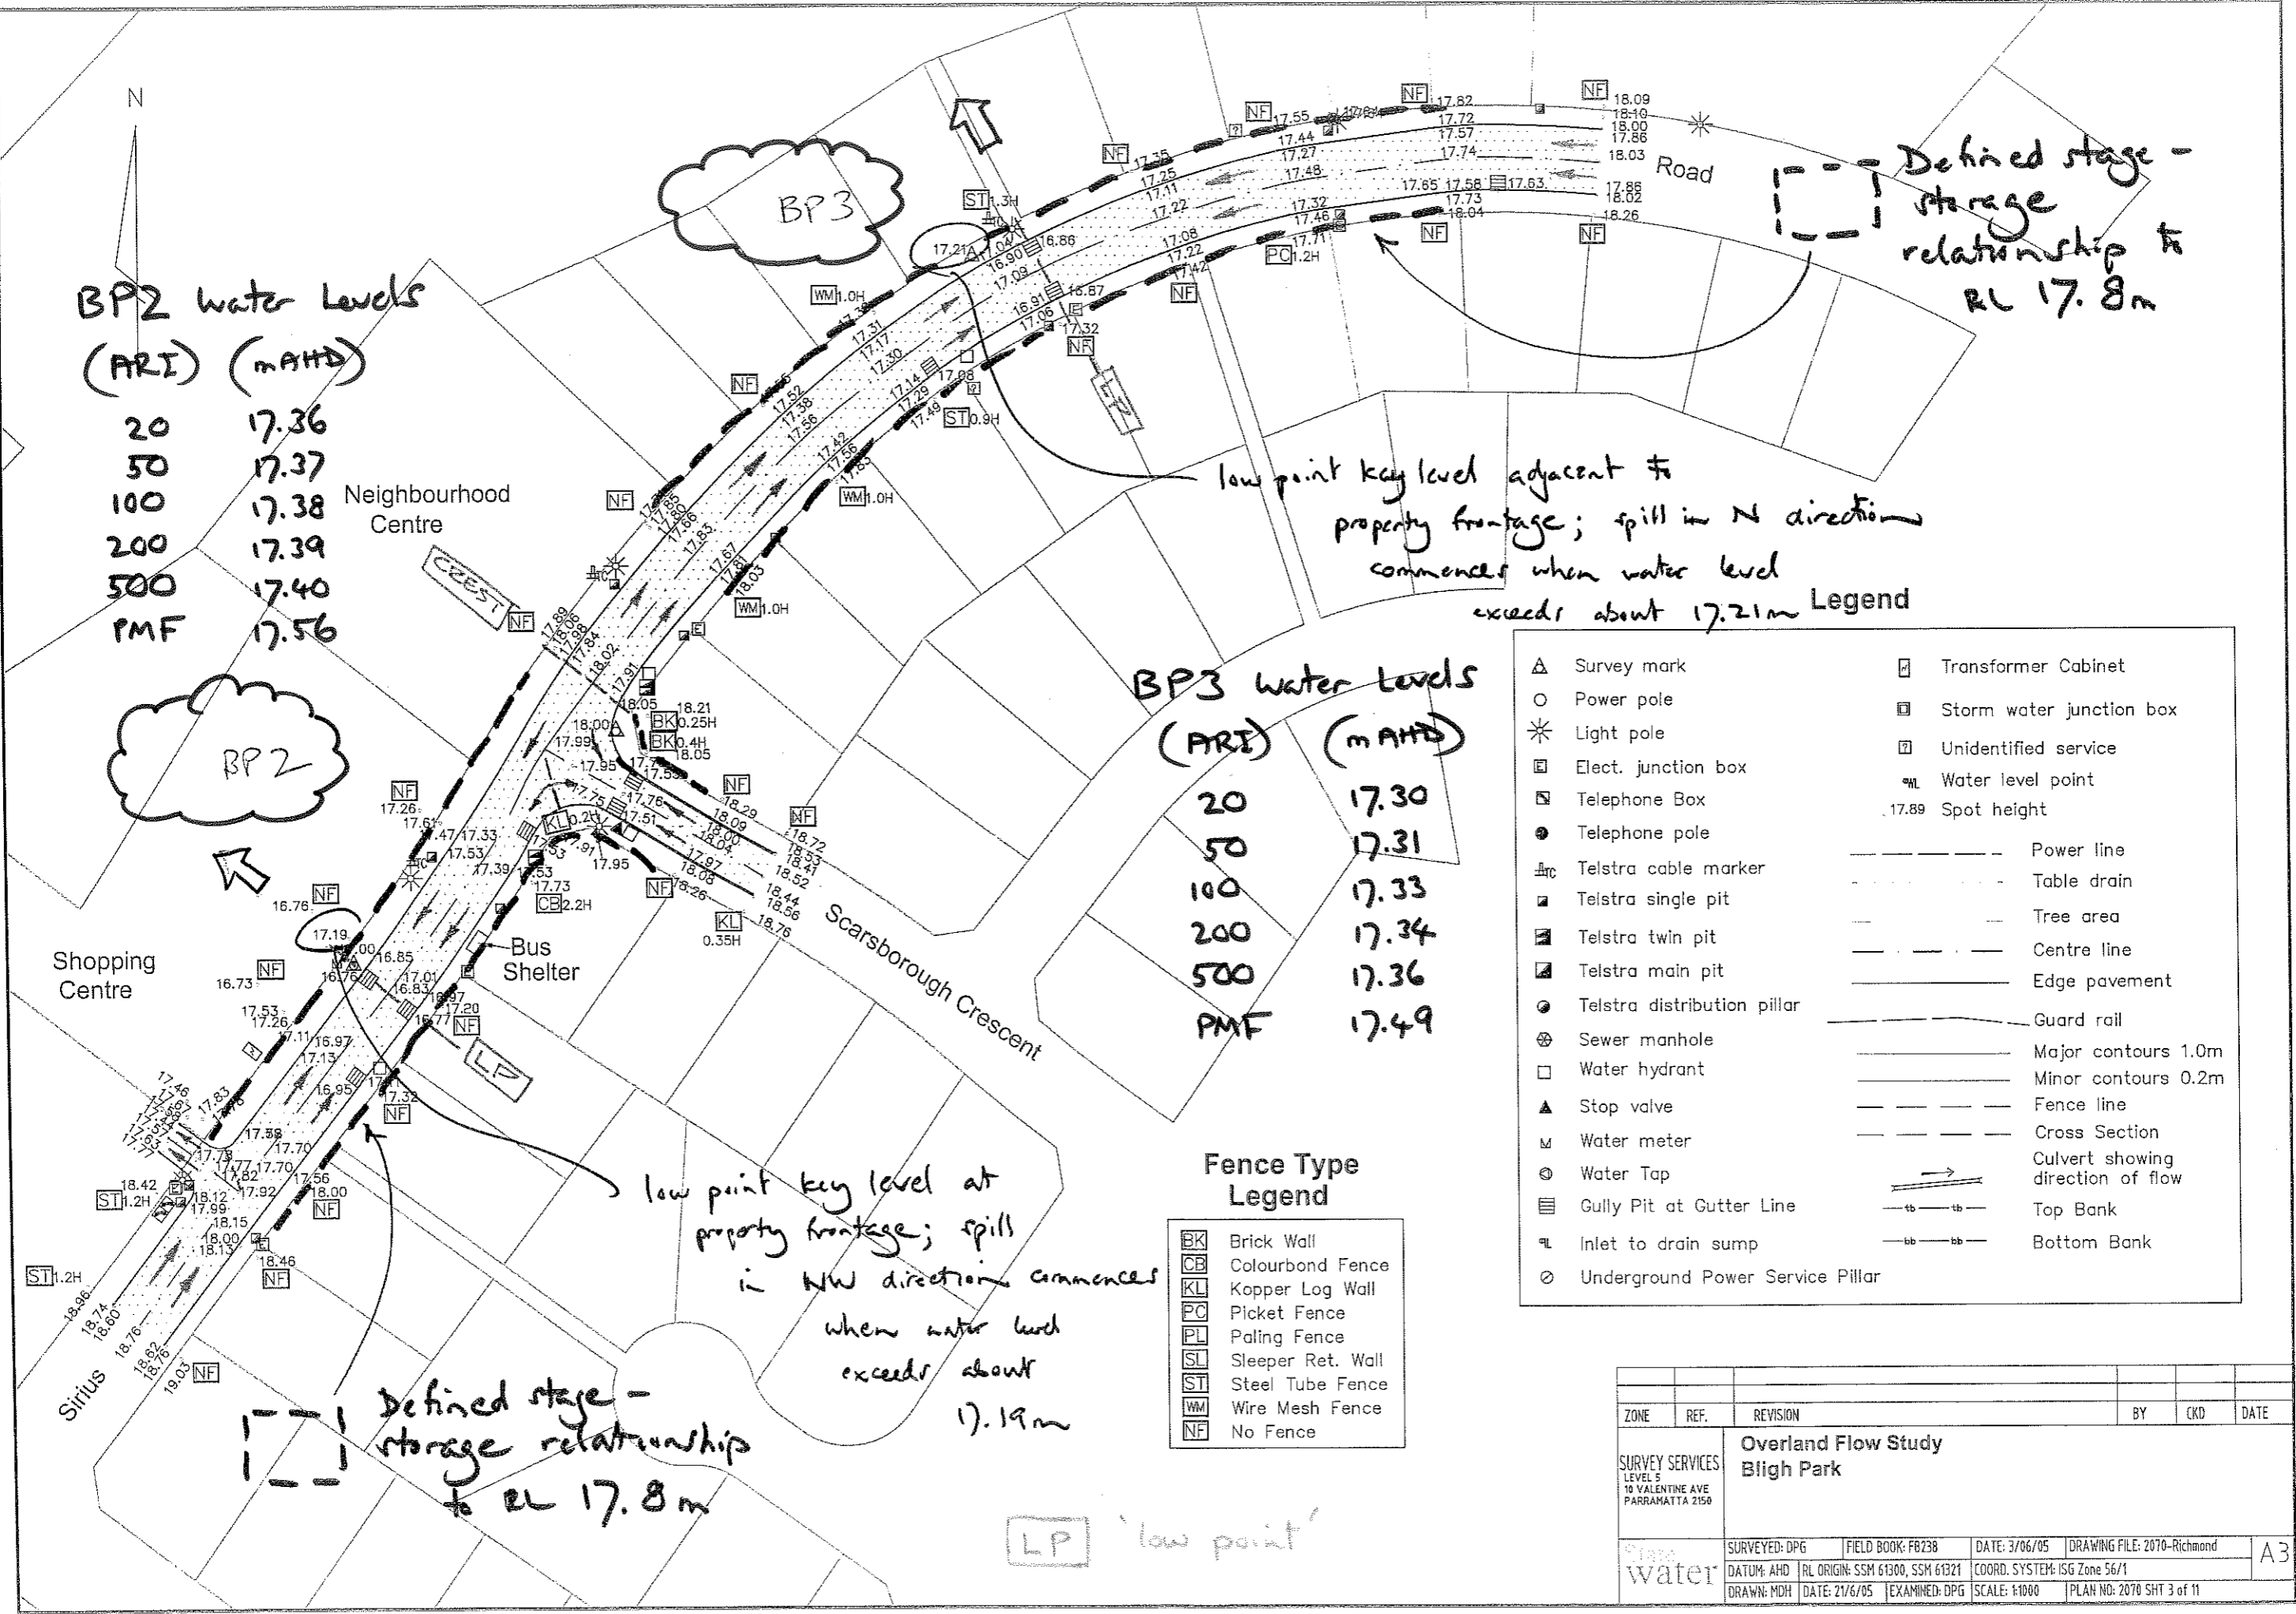 N
BP3
BP2 Water Levels
(ARI) (mAHD)
20 17.36
50 17.37
100 17.38
200 17.39
500 17.40
PMF 17.56
BP2
Neighbourhood
Centre
CREST
Shopping
Centre
Bus
Shelter
Scarsborough Crescent
Sirius
Road
LP
LP
Defined stage -
storage
relationship to
RL 17.8m
low point key level adjacent to
property frontage; spill in N direction
commences when water level
exceeds about 17.21m
BP3 Water Levels
(ARI) (mAHD)
20 17.30
50 17.31
100 17.33
200 17.34
500 17.36
PMF 17.49
low point key level at
property frontage; spill
in NW direction commences
when water level
exceeds about
17.19m
Defined stage -
storage relationship
to RL 17.8m
LP 'low point'
NF
18.09
18.10
18.00
17.86
18.03
17.86
18.02
18.26
NF
NF
17.82
17.72
17.57
17.74
17.65 17.58 17.63
17.73
18.04
NF
NF
17.55
17.44
17.27
17.48
17.32
17.46
17.71
PC 1.2H
NF
17.35
17.25
17.11
17.22
17.08
17.22
17.42
NF
ST 1.3H
17.21
17.04
16.86
16.90
17.09
16.91
16.87
17.06
17.32
NF
WM 1.0H
17.31
17.17
17.30
17.14
17.08
17.29
17.49
ST 0.9H
NF
17.52
17.38
17.56
17.42
17.56
17.83
WM 1.0H
NF
17.85
17.80
17.66
17.83
17.67
17.81
18.03
WM 1.0H
NF
17.89
18.06
17.98
17.84
18.02
17.91
18.05
18.21
BK 0.25H
BK 0.4H
18.05
18.00
17.99
17.95
NF
18.29
18.09
18.00
18.04
17.97
18.08
18.26
NF
18.72
18.53
18.41
18.52
18.44
18.56
18.76
KL
0.35H
NF
17.75
17.76
17.51
KL 0.2H
17.91
17.95
17.53
17.53
17.73
CB 2.2H
NF
17.26
17.61
17.47 17.33
17.53
17.39
NF
16.76
17.19
16.85
16.76
17.01
16.83
16.97
17.20
16.77
NF
NF
16.73
17.53
17.26
17.11
16.97
17.13
16.95
17.32
NF
17.46
17.63
17.77
17.83
17.58
17.70
17.73
17.77 17.70
17.82
17.92
17.56
18.00
NF
18.42
ST 1.2H
18.12
17.99
18.15
18.00
18.13
18.46
NF
ST 1.2H
18.96
18.74
18.60
18.76
18.62
18.76
19.03
NF
Legend
Survey mark
Power pole
Light pole
Elect. junction box
Telephone Box
Telephone pole
Telstra cable marker
Telstra single pit
Telstra twin pit
Telstra main pit
Telstra distribution pillar
Sewer manhole
Water hydrant
Stop valve
Water meter
Water Tap
Gully Pit at Gutter Line
Inlet to drain sump
Underground Power Service Pillar
Transformer Cabinet
Storm water junction box
Unidentified service
Water level point
17.89 Spot height
Power line
Table drain
Tree area
Centre line
Edge pavement
Guard rail
Major contours 1.0m
Minor contours 0.2m
Fence line
Cross Section
Culvert showing
direction of flow
tb tb Top Bank
bb bb Bottom Bank
Fence Type
Legend
BK Brick Wall
CB Colourbond Fence
KL Kopper Log Wall
PC Picket Fence
PL Paling Fence
SL Sleeper Ret. Wall
ST Steel Tube Fence
WM Wire Mesh Fence
NF No Fence
ZONE REF. REVISION BY CKD DATE
SURVEY SERVICES
LEVEL 5
10 VALENTINE AVE
PARRAMATTA 2150
Overland Flow Study
Bligh Park
water
SURVEYED: DPG FIELD BOOK: FB238 DATE: 3/06/05 DRAWING FILE: 2070-Richmond
DATUM: AHD RL ORIGIN: SSM 61300, SSM 61321 COORD. SYSTEM: ISG Zone 56/1
DRAWN: MDH DATE: 21/6/05 EXAMINED: DPG SCALE: 1:1000 PLAN NO: 2070 SHT 3 of 11
A3